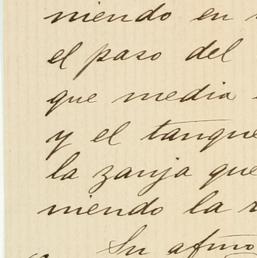 niendo en
el paso del
que media
y el tanque
la zanja que
niendo la
Su afmo